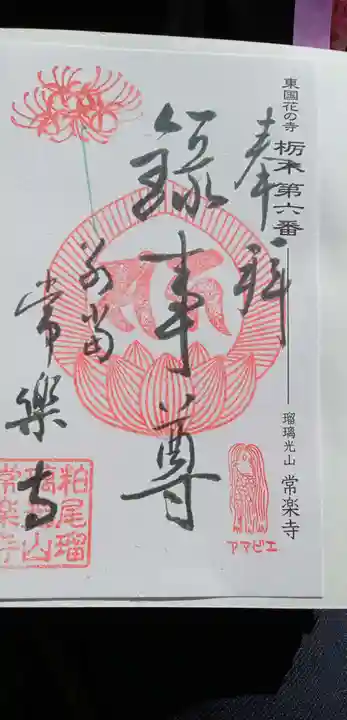 東国花の寺 栃木第六番 瑠璃光山 常楽寺
奉拝
録事尊
別当
常樂寺
アマビエ
粕尾瑠
璃光山
常楽寺